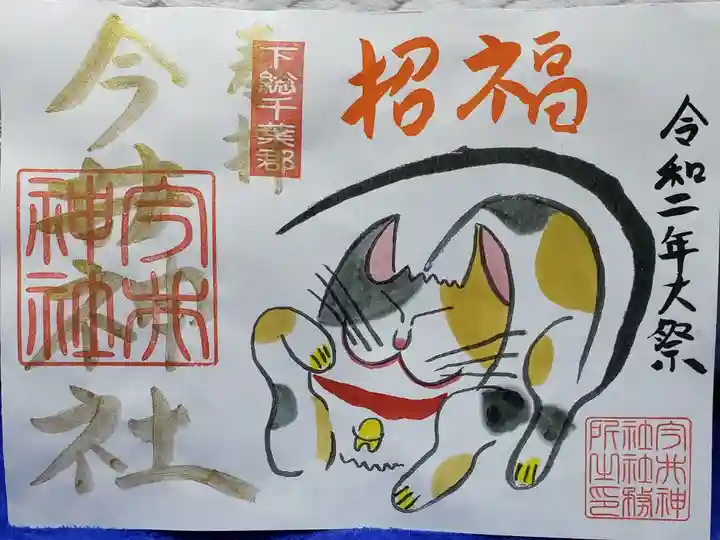 招福
令和二年大祭
奉拝
下総千葉郡
今井神社
今井神社
今井神
社社務
所之印